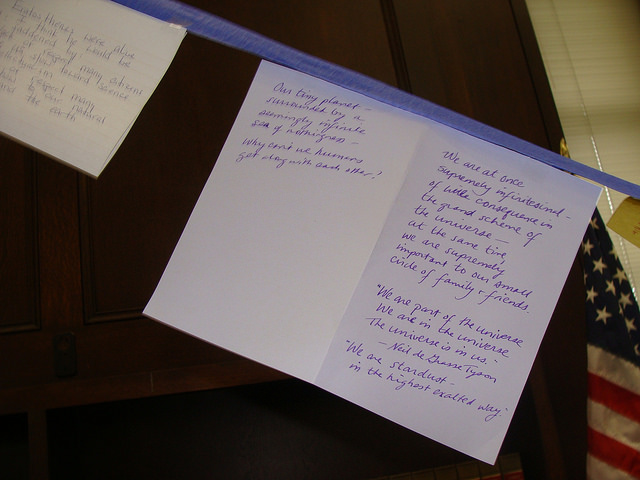 Eratosthenes were alive
I think he would be
by many citizens
toward service
respect many
our natural
the earth
Our tiny planet -
surrounded by a
seemingly infinite
sea of nothingness -
Why can't we humans
get along with each other?
We are at once
supremely infinitesimal -
of little consequence in
the grand scheme of
the universe -
at the same time
we are supremely
important to our small
circle of family + friends.
"We are part of the universe
We are in the universe
The universe is in us."
- Neil de Grasse Tyson
"We are stardust -
in the highest exalted way."